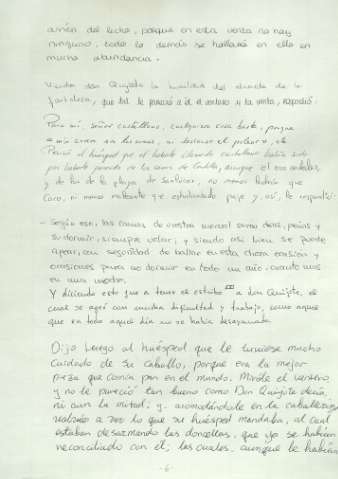 amén del lecho, porque en esta venta no hay
ninguno, todo lo demás se hallará en ella en
mucha abundancia.
Viendo don Quijote la humildad del alcaide de la
fortaleza, que tal le pareció a él el ventero y la venta, respondió:
Para mí, señor castellano, cualquiera cosa basta, porque
mis arreos son las armas, mi descanso el pelear, etc
Pensó el huésped que el haberle llamado castellano había sido
por haberle parecido de los sanos de Castilla, aunque él era andaluz,
y de los de la playa de Sanlúcar, no menos ladrón que
Caco, ni menos maleante que estudiantado paje y así, le respondió:
- Según eso, las camas de vuestra merced serán duras peñas y
su dormir, siempre velar; y siendo así, bien se puede
apear, con seguridad de hallar en esta choza ocasión y
ocasiones para no dormir en todo un año, cuanto más
en una noche.
Y diciendo esto fue a tener el estribo a don Quijote, el
cual se apeó con mucha dificultad y trabajo, como aquel
que en todo aquel día no se había desayunado.
Dijo luego al huésped que le tuviese mucho
cuidado de su caballo, porque era la mejor
pieza que comía pan en el mundo. Miróle el ventero,
y no le pareció tan bueno como Don Quijote decía,
ni aun la mitad; y, acomodándole en la caballeriza,
volvió a ver lo que su huésped mandaba, al cual
estaban desarmando las doncellas, que ya se habían
reconciliado con él; las cuales, aunque le habían
-6-